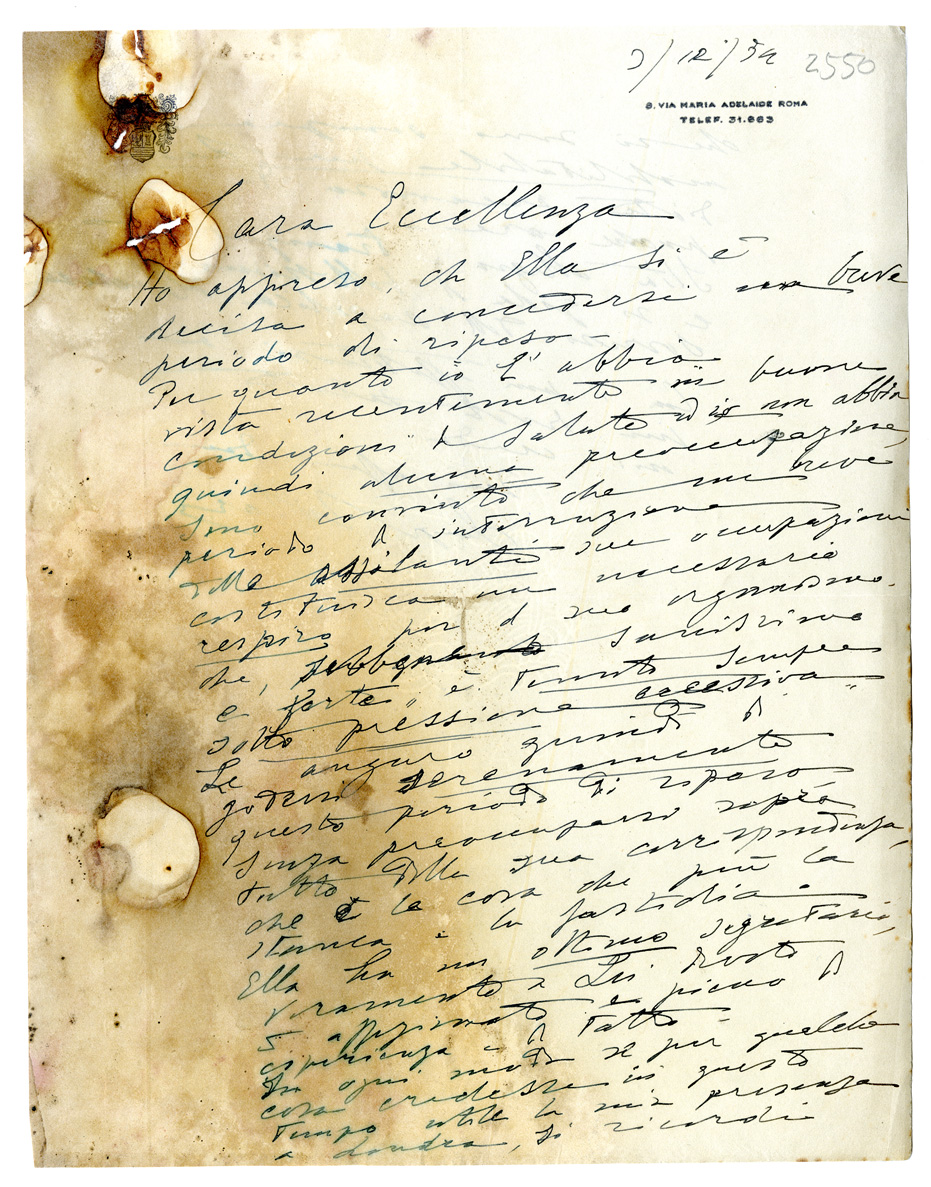 3/12/34 2550
8. VIA MARIA ADELAIDE ROMA
TELEF. 31.663
Cara Eccellenza
Ho appreso, che Ella si è
decisa a concedersi un breve
periodo di riposo -
Per quanto io l'abbia
vista recentemente in buone
condizioni di salute ed io non abbia
quindi alcuna preoccupazione,
sono convinto che un breve
periodo di interruzione
delle assillanti sue occupazioni
costituisca un necessario
respiro per il suo organismo.
che, sebbene sanissimo
e forte, è tenuto sempre
sotto pressione eccessiva -
Le auguro quindi di
godersi serenamente
questo periodo di riposo,
senza preoccuparsi sopra
tutto della sua corrispondenza,
che è la cosa che più la
stanca e la fastidia -
Ella ha un ottimo segretario,
veramente a Lei devoto
e affezionato e pieno di
esperienza e di tatto -
In ogni modo se per qualche
cosa credesse in questo
tempo utile la mia presenza
a Londra, si ricordi